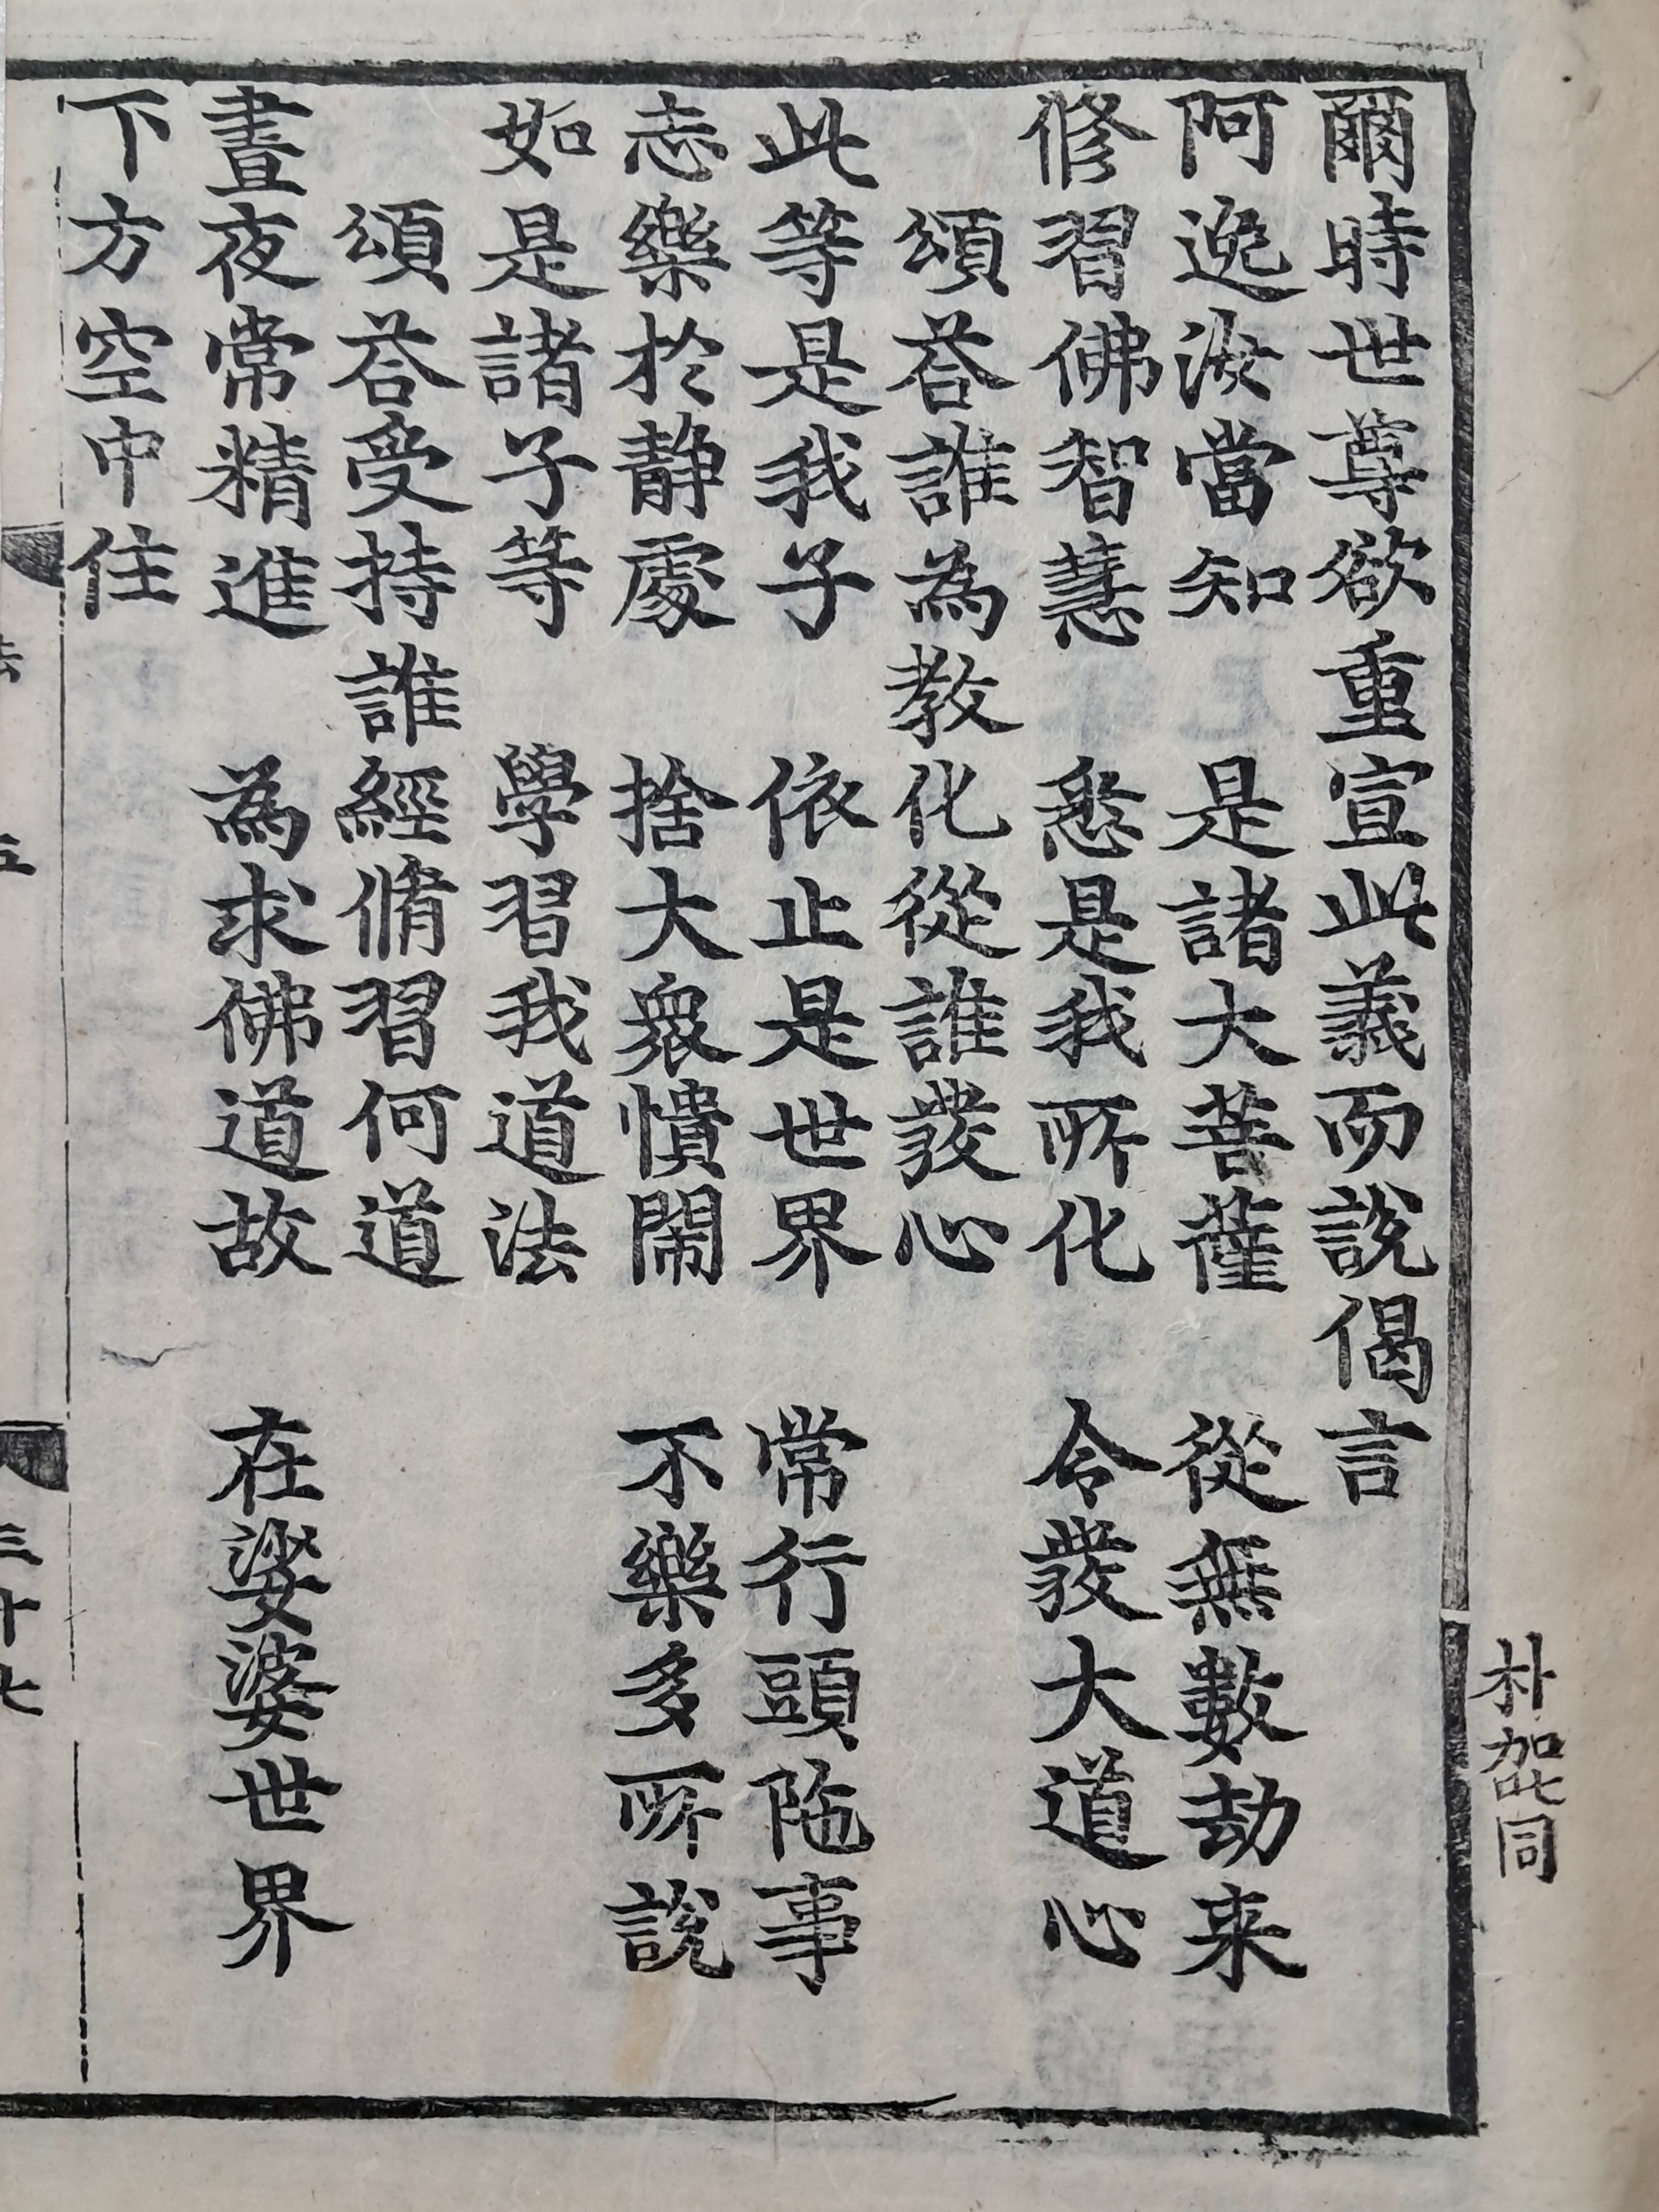 爾時世尊欲重宣此義而說偈言
阿逸汝當知　是諸大菩薩　從無數劫来
修習佛智慧　悉是我所化　令發大道心
頌荅誰為教化從誰發心
此等是我子　依止是世界　常行頭陁事
志樂於静處　捨大衆憒閙　不樂多所說
如是諸子等　學習我道法
頌荅受持誰經脩習何道
晝夜常精進　為求佛道故　在娑婆世界
下方空中住
朴
同
三十七